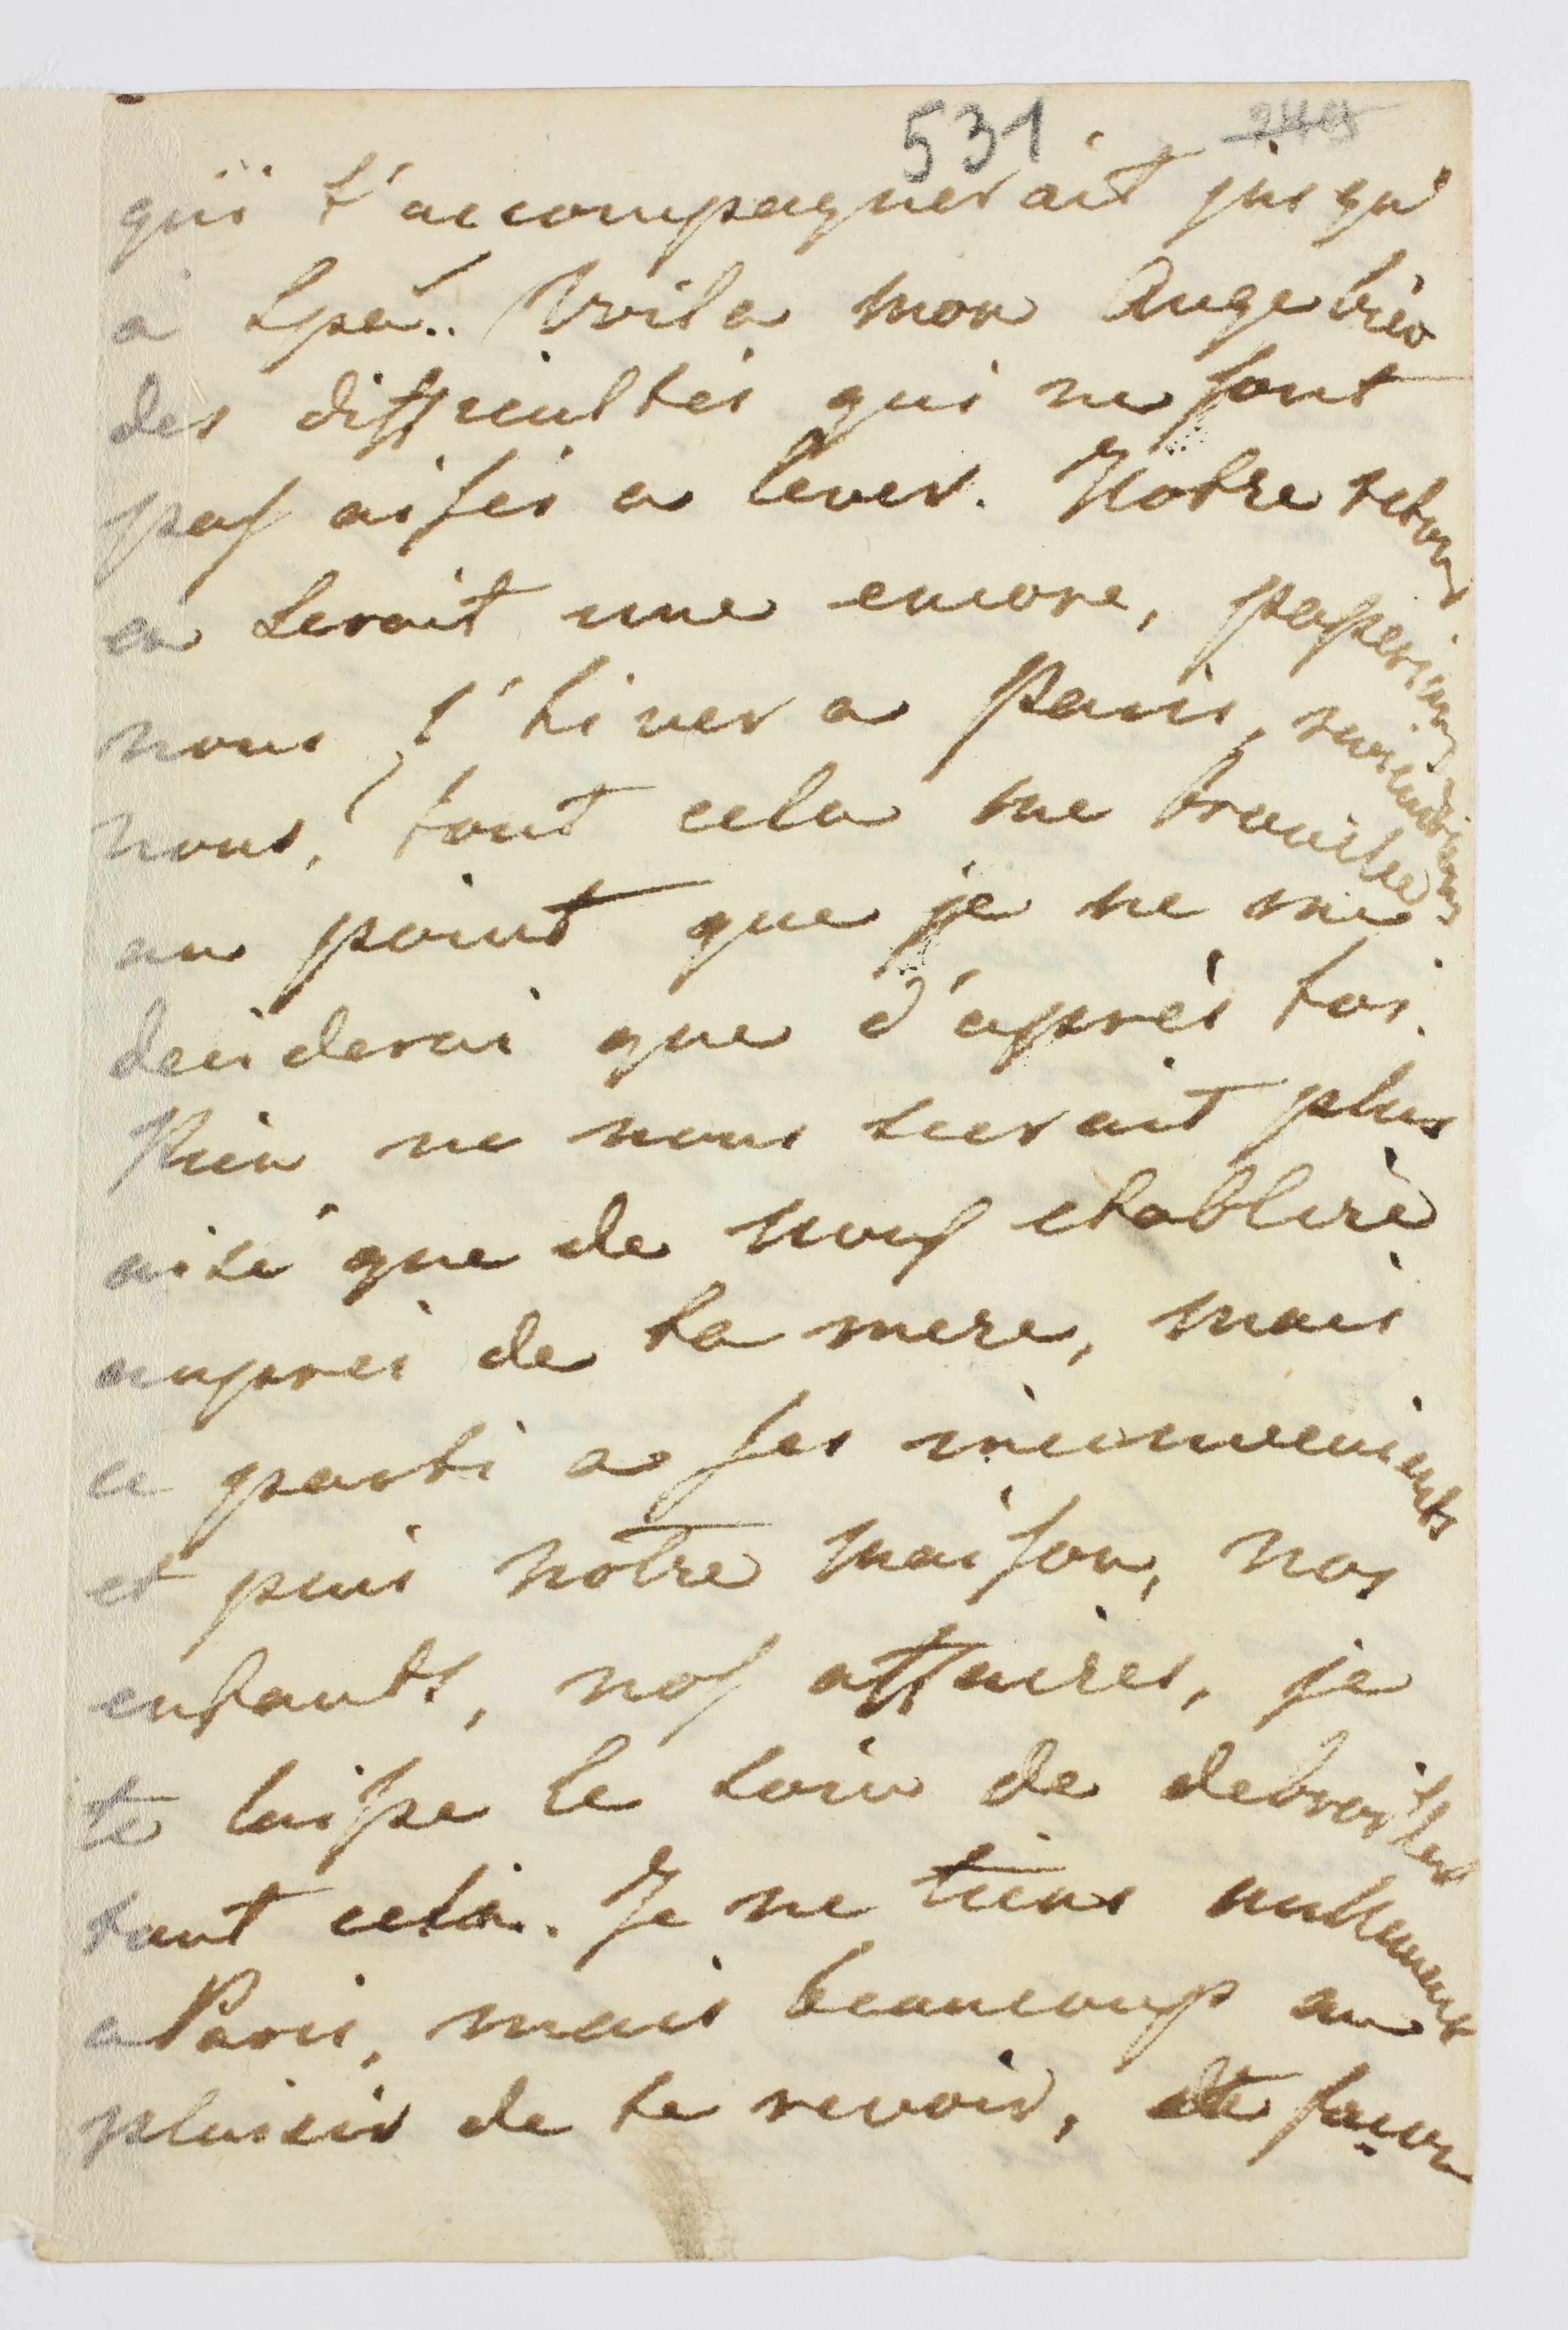 531 249
qui t'accompagnerait jusqu'
a Spa.. Voila mon Ange bien
des difficultés qui ne sont
pas aisées a lever. Notre retour
en seroit une encore, passerions
nous l'hiver a Paris, reviendrions
nous, tout cela me brouille
au point que je ne me
deciderai que d'après toi.
Rien ne nous serait plus
aisé que de nous etablire
aupres de ta mere, mais
ce parti a ses inconvenients
et puis notre maison, nos
enfants, nos affaires, je
te laisse le soin de debrouiller
tout cela. Je ne tiens nullement
a Paris, mais beaucoup au
plaisir de te revoir, de façon